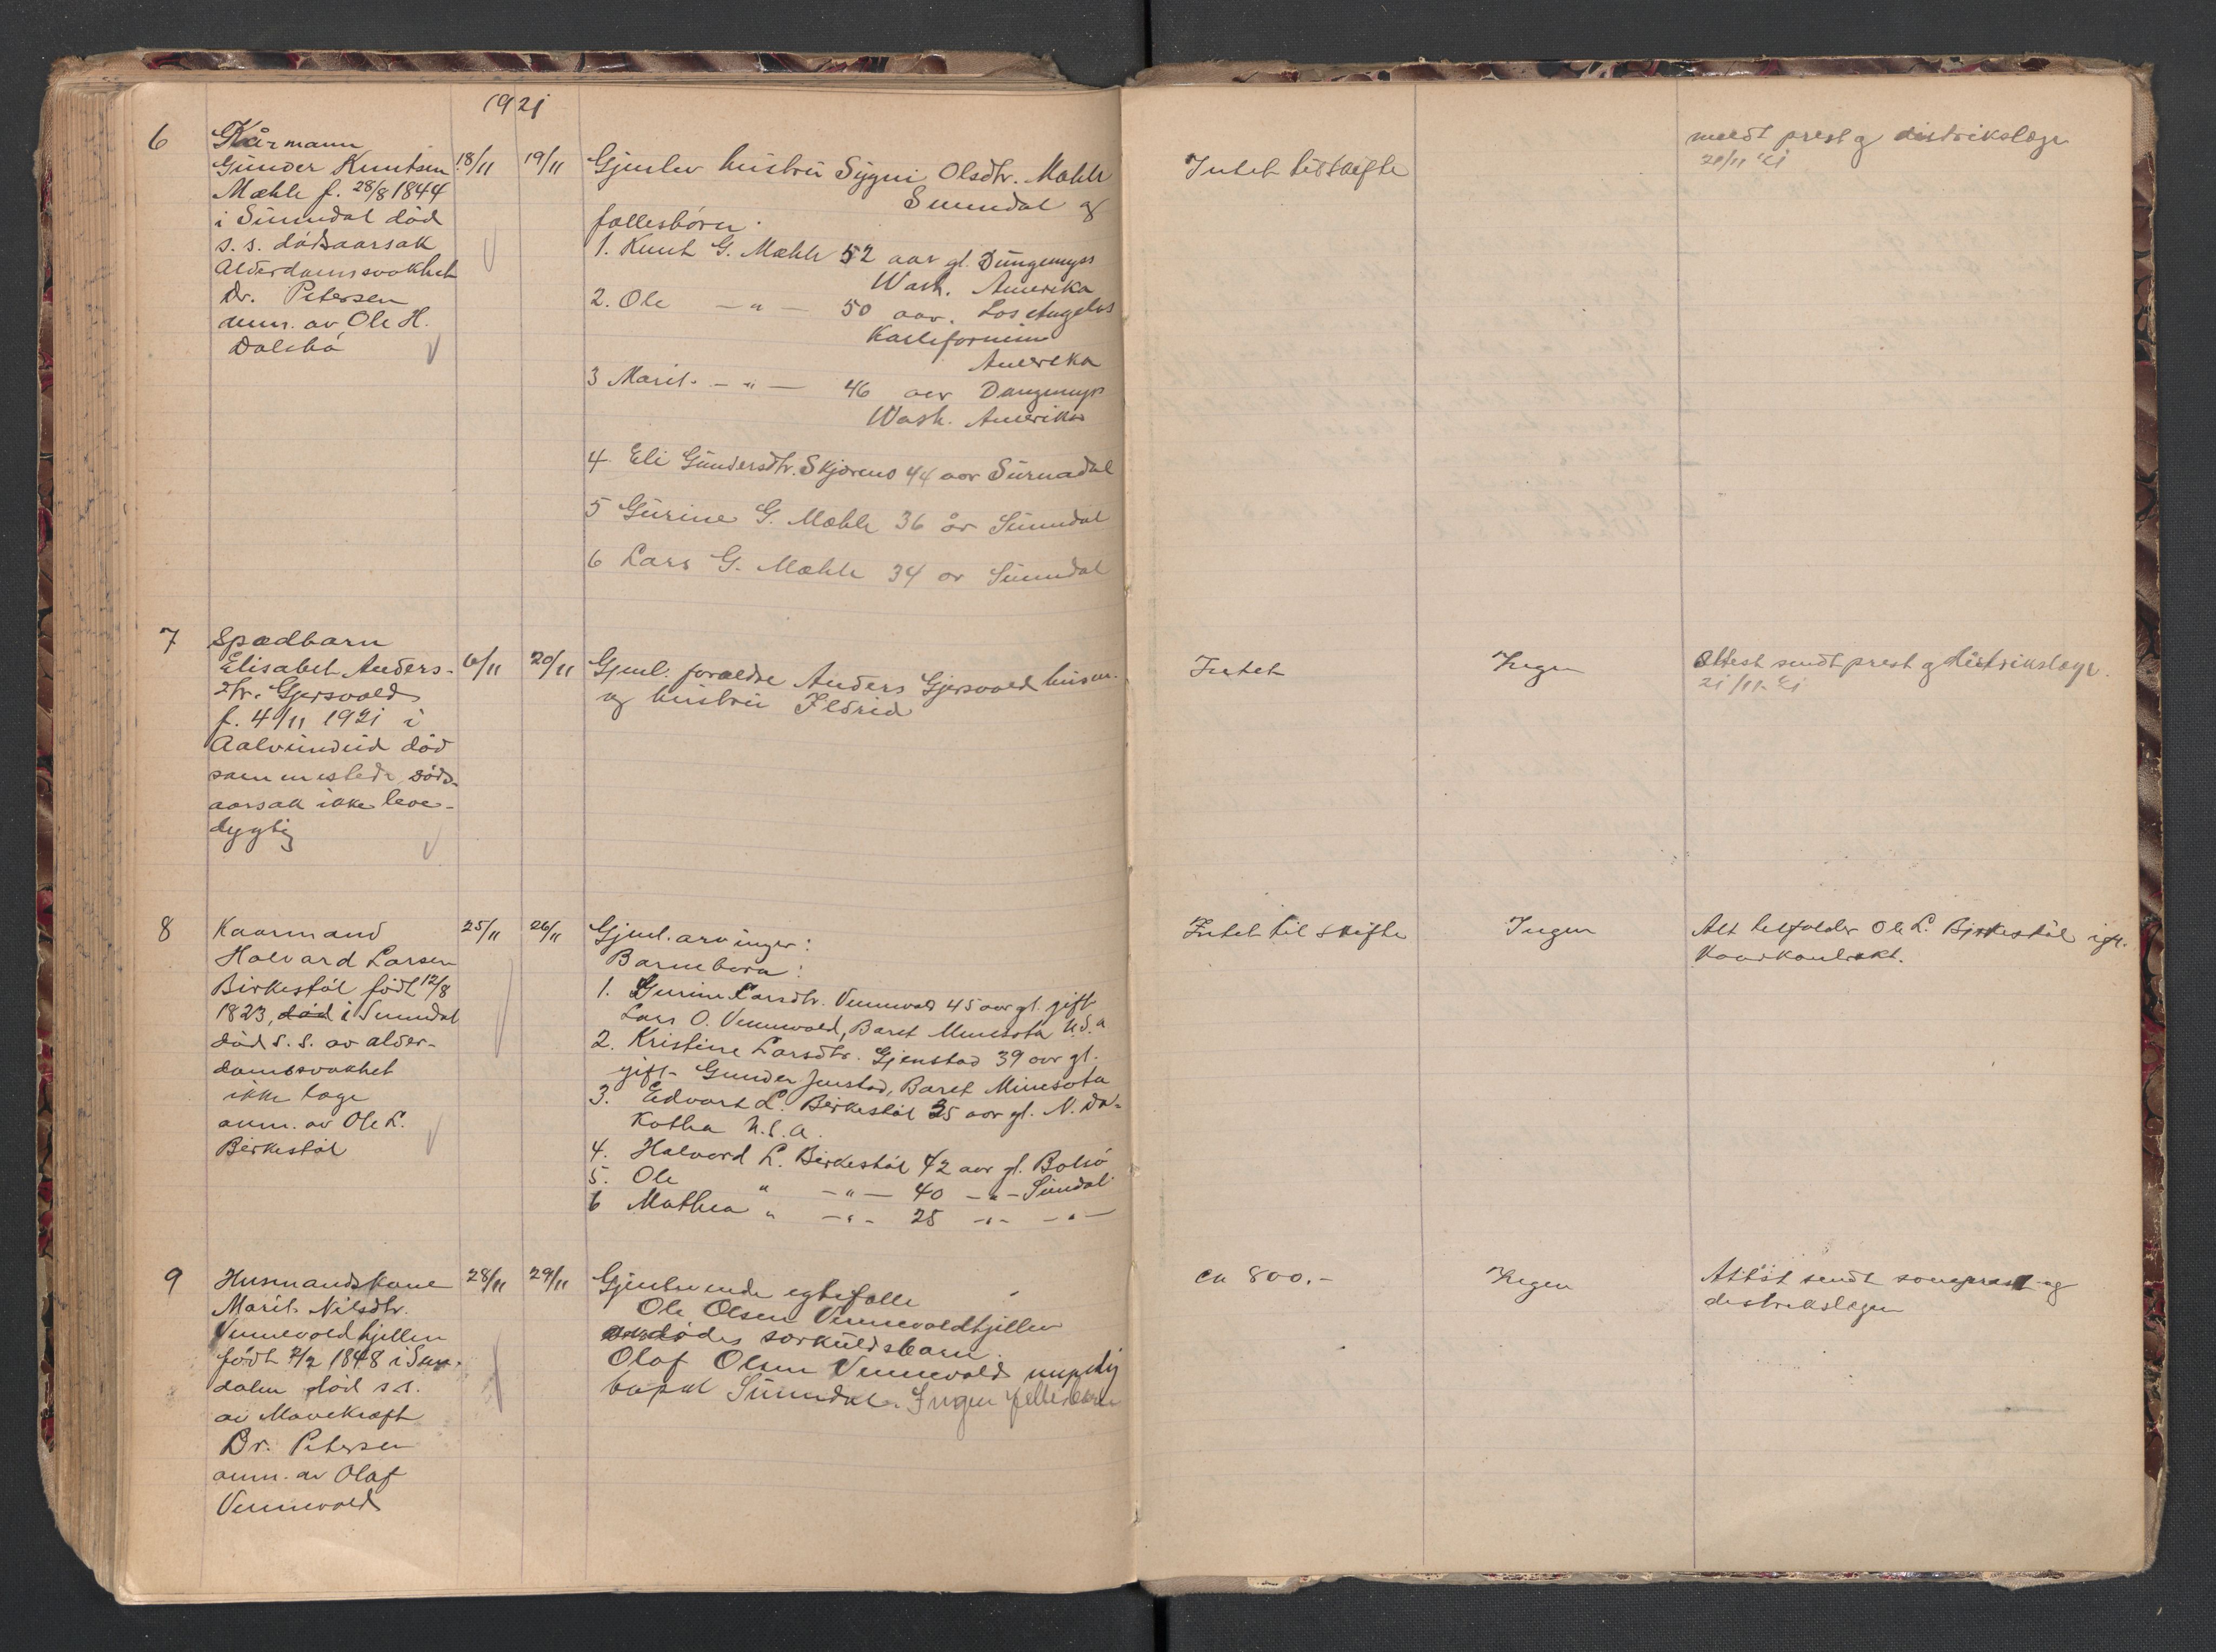 1921
6
Kårmann
Gunder Knutsen
Mæhle f. 28/8 1844
i Sunndal död
s. s. dödsaarsak
Alderdomssvakhet
Dr. Petersen
anm. av Ole H.
Dalebö
18/11
19/11
Gjenlev hustru Sygni Olsdtr. Mæhle
Sunndal og
fællesbörn.
1. Knut G. Mæhle 52 aar gl.
Wash. Amerika
2. Ole — " — 50 aar. Los Angelos
Kalifornien
Amerika
3 Marit. — " — 46 aar
Wash. Amerika
4. Eli Gundersdtr. Skjöreno 44 aar Surnadal
5 Gurine G. Mæhle 36 år Sunndal
6 Lars G. Mæhle 34 år Sunndal
Intet til skifte
meldt prest og distrikslæge
20/11 '21
7
Spædbarn
Elisabet Anders-
dtr. Gjersvold
f. 4/11 1921 i
Aalvundeid död
sammesteds döds-
aarsak ikke leve-
dygtig
6/11
20/11
Gjenl. forældre Anders Gjersvold husm.
og hustru Ildrid
Intet
Ingen
Attest sendt prest og distrikslæge.
21/11-21
8
Kaarmand
Halvard Larsen
Birkestöl födt 12/8
1823, död i Sunndal
död s. s. av alder-
domssvakhet
ikke læge
anm. av Ole L.
Birkestöl
25/11
26/11
Gjenl. arvinger:
Barnebarn:
1. Gurine Larsdtr. Vennevold 45 aar gl. gift
Lars O. Vennevold, Baret Minesota U.S.a
2. Kristine Larsdtr. Gjenstad 39 aar gl.
gift Gunder Jenstad, Baret Minesota
3. Edvart L. Birkestöl 35 aar gl. N. Da-
kotha U.S.A.
4. Halvard L. Birkestöl 42 aar gl. Bolsö
5. Ole " — " — 40 — " — Sundal
6 Mathea " — " — 25 — " — — " —
Intet til skifte
Ingen
Alt tilfalder Ole L. Birkestöl ifl.
Kaarkontrakt.
9
Husmandskone
Marit Nilsdtr.
Vennevoldhjellen
födt 7/2 1848 i Sun-
dalen död s.s.
av Mavekræft
Dr. Petersen
anm. av Olaf
Vennevold
28/11
29/11
Gjenlevende egtefælle
Ole Olsen Vennevoldhjellen
avdödes særkuldsbarn.
Olaf Olsen Vennevold myndig
bopæl Sunndal. Ingen fellesbarn
ca 800.-
Ingen
Attest sendt sogneprest og
distrikslægen